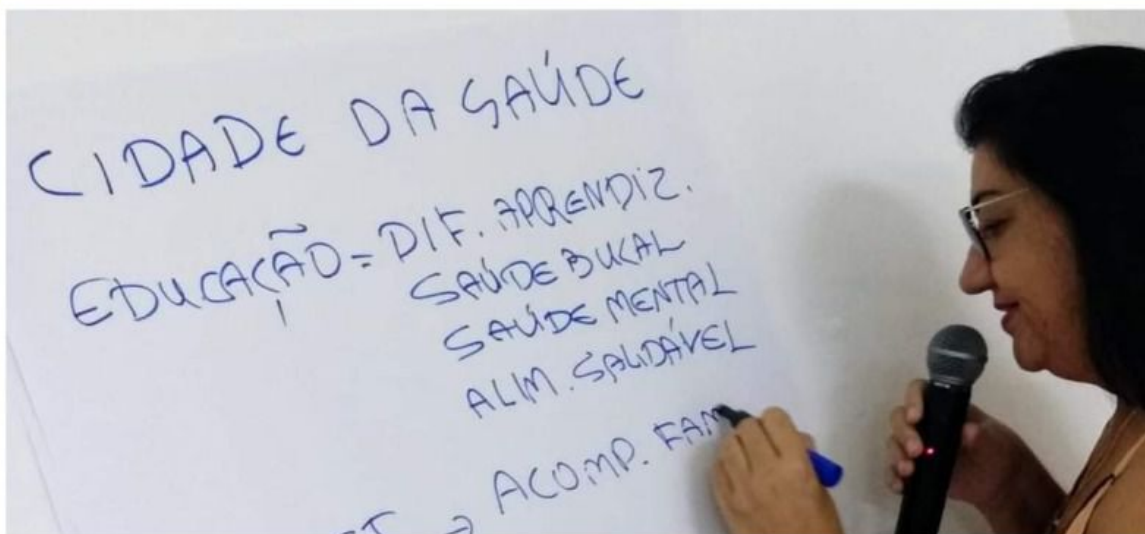 CIDADE DA SAÚDE
EDUCAÇÃO = DIF. APRENDIZ.
SAÚDE BUCAL
SAÚDE MENTAL
ALIM. SAUDÁVEL
→ ACOMP. FAM